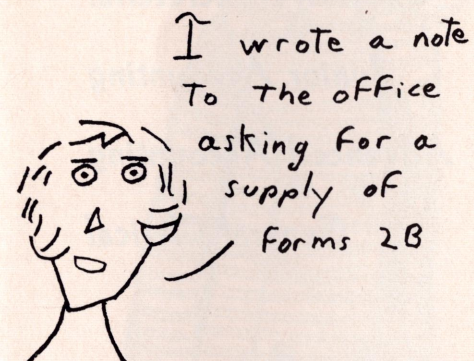 I wrote a note
to the office
asking for a
supply of
forms 2B